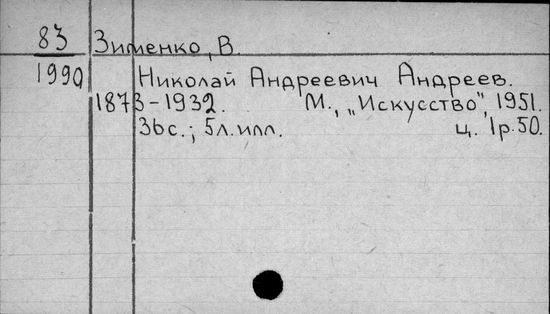 83 Зименко, В.
1990 Николай Андреевич Андреев.
1873-1932. М., „Искусство", 1951.
36с.; 5л.илл. ц. 1р.50.